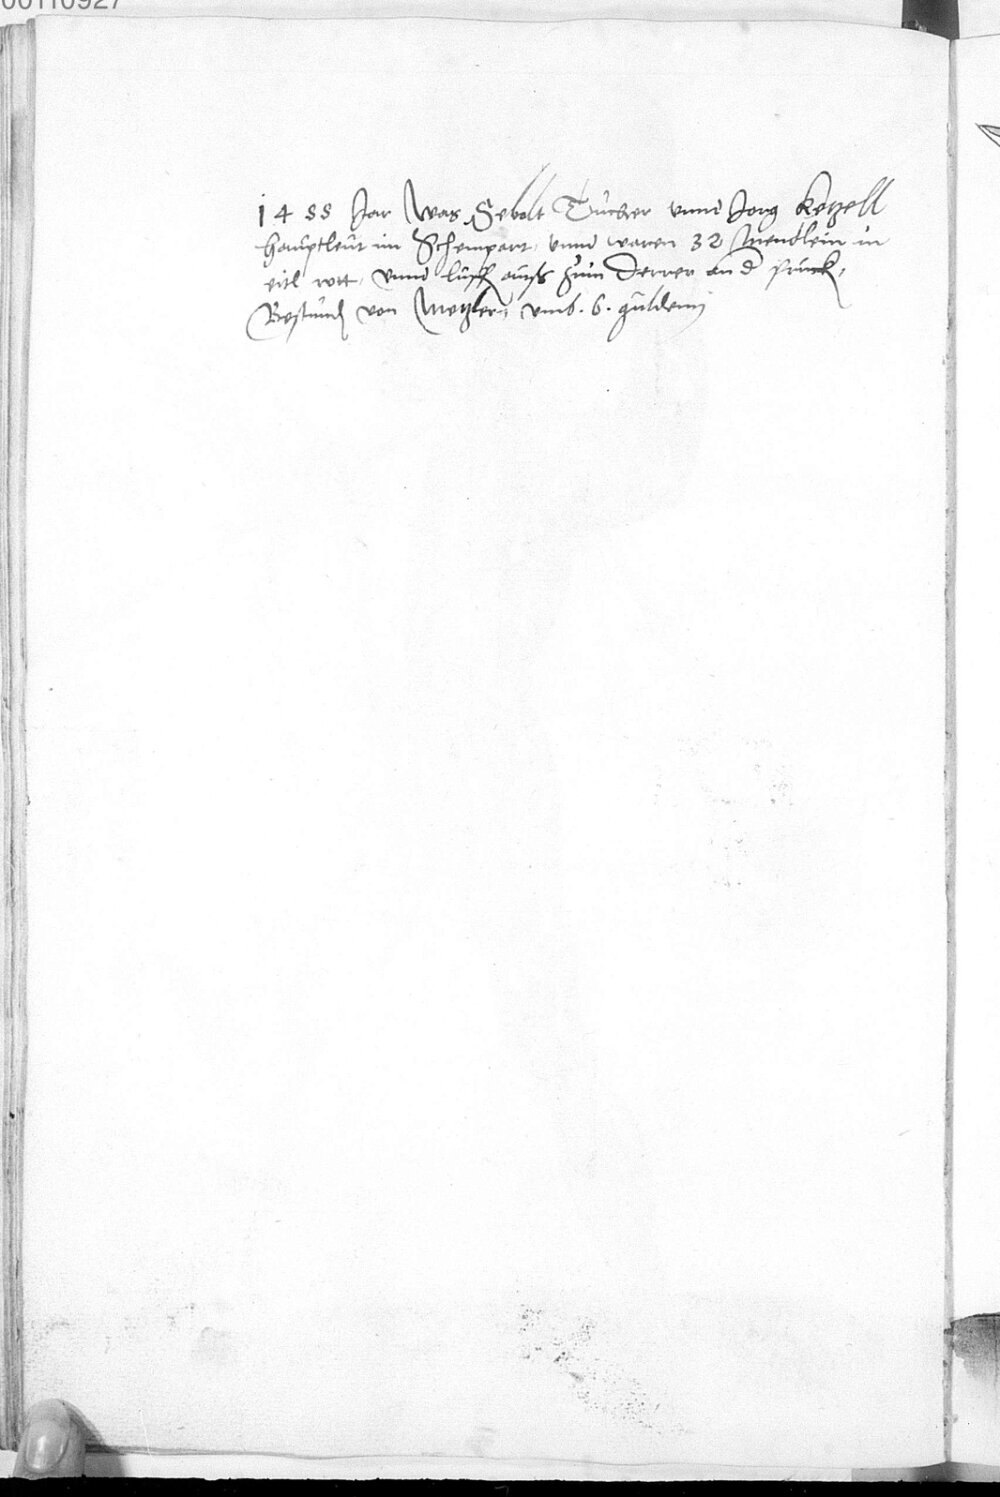 00110927
1455 Jar Was Sebolt Tucher vnnd Jorg Ketzell
hauptleut im Schempart, vnnd waren 32 Mendlein in
eitl rott, vnnd luff auß zum Derrer an d pruck,
Bestund von Metzlern vmb. 6. gulden